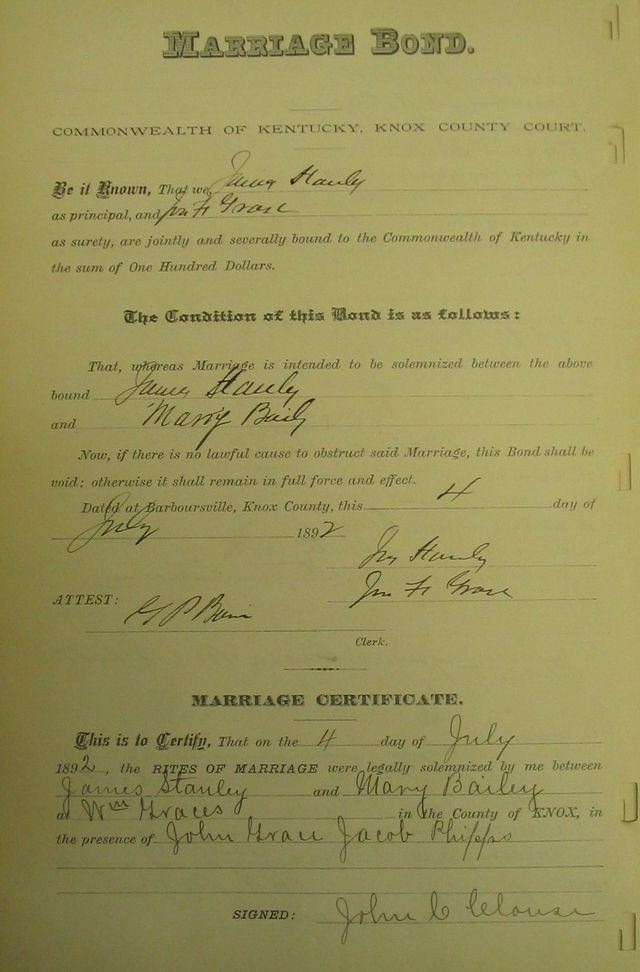 MARRIAGE BOND.
COMMONWEALTH OF KENTUCKY, KNOX COUNTY COURT.
Be it Known, That we, James Stanly
as principal, and Jno H Grace
as surety, are jointly and severally bound to the Commonwealth of Kentucky in
the sum of One Hundred Dollars.
The Condition of this Bond is as follows:
That, whereas Marriage is intended to be solemnized between the above
bound James Stanly
and Marry Baily
Now, if there is no lawful cause to obstruct said Marriage, this Bond shall be
void; otherwise it shall remain in full force and effect.
Dated at Barboursville, Knox County, this 4 day of
July 1892
Jas Stanly
Jno H Grace
ATTEST: G P Bain
Clerk.
MARRIAGE CERTIFICATE.
This is to Certify, That on the 4 day of July
1892, the RITES OF MARRIAGE were legally solemnized by me between
James Stanley and Mary Bailey
at Wm Graces in the County of KNOX, in
the presence of John Grace Jacob Phipps
SIGNED: John C Clouse